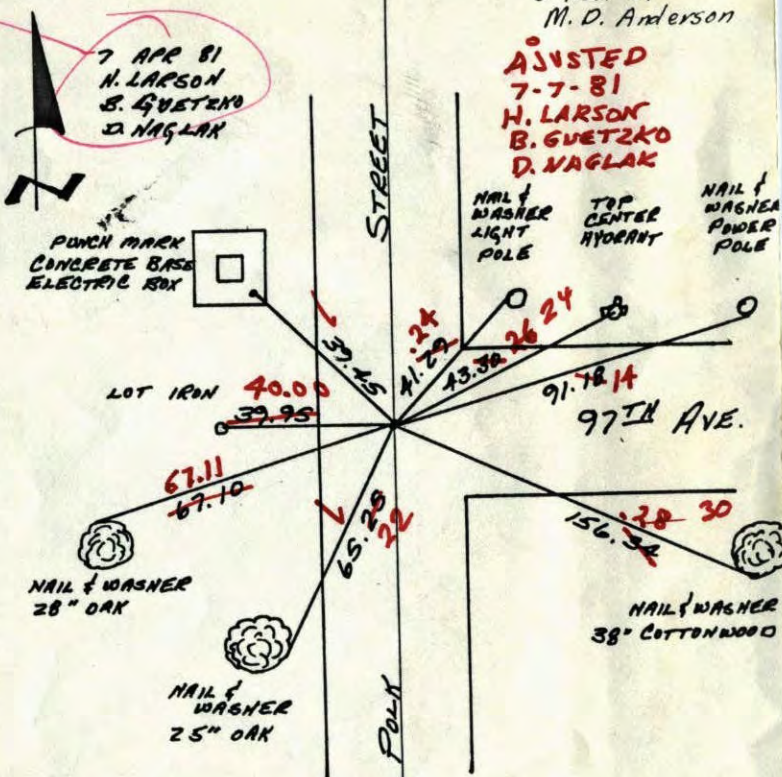 M. D. Anderson
7 APR 81
H. LARSON
B. GUETZKO
D. NAGLAK
AJUSTED
7-7-81
H. LARSON
B. GUETZKO
D. NAGLAK
STREET
NAIL &
WASHER
LIGHT
POLE
TOP
CENTER
HYDRANT
NAIL &
WASHER
POWER
POLE
PUNCH MARK
CONCRETE BASE
ELECTRIC BOX
39.45
.24
41.29
26 24
43.30
91.18 14
LOT IRON
40.00
39.95
97TH AVE.
67.11
67.10
65.25
22
156.34
.28 30
NAIL & WASHER
28" OAK
NAIL & WASHER
38" COTTONWOOD
NAIL &
WASHER
25" OAK
POLK